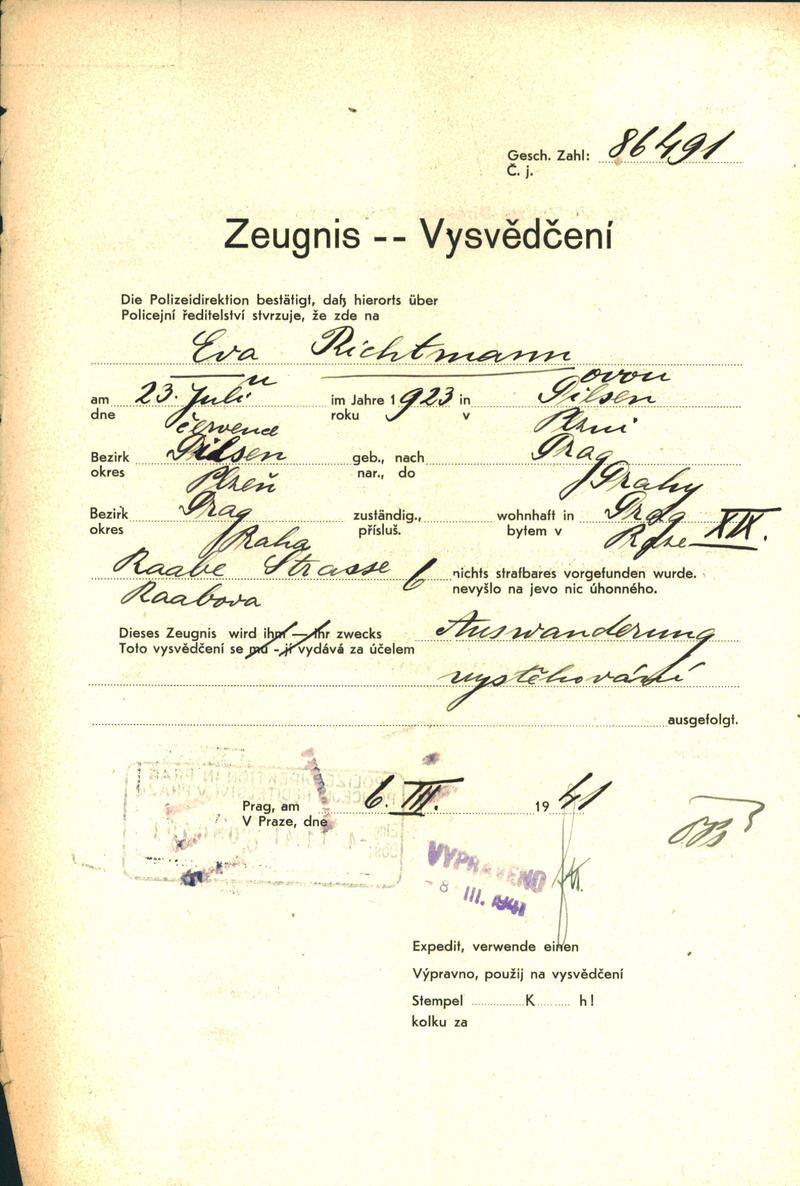 Gesch. Zahl: 86491
Č. j.
Zeugnis -- Vysvědčení
Die Polizeidirektion bestätigt, daß hierorts über
Policejní ředitelství stvrzuje, že zde na
Eva Richtmann
u ovou
am 23. Juli im Jahre 1923 in Pilsen
dne července roku v Plzni
Bezirk Pilsen geb., nach Prag
okres Plzeň nar., do Prahy
Bezirk Prag zuständig., wohnhaft in Prag
okres Praha přísluš. bytem v Praze XIX.
Raabe Strasse 6 nichts strafbares vorgefunden wurde.
Raabova nevyšlo na jevo nic úhonného.
Dieses Zeugnis wird ihm — ihr zwecks Auswanderung
Toto vysvědčení se mu - jí vydává za účelem
vystěhování
ausgefolgt.
Prag, am 6. III. 1941
V Praze, dne
VYPRAVENO
- 8 III. 1941
Expedit, verwende einen
Výpravno, použij na vysvědčení
Stempel K h!
kolku za